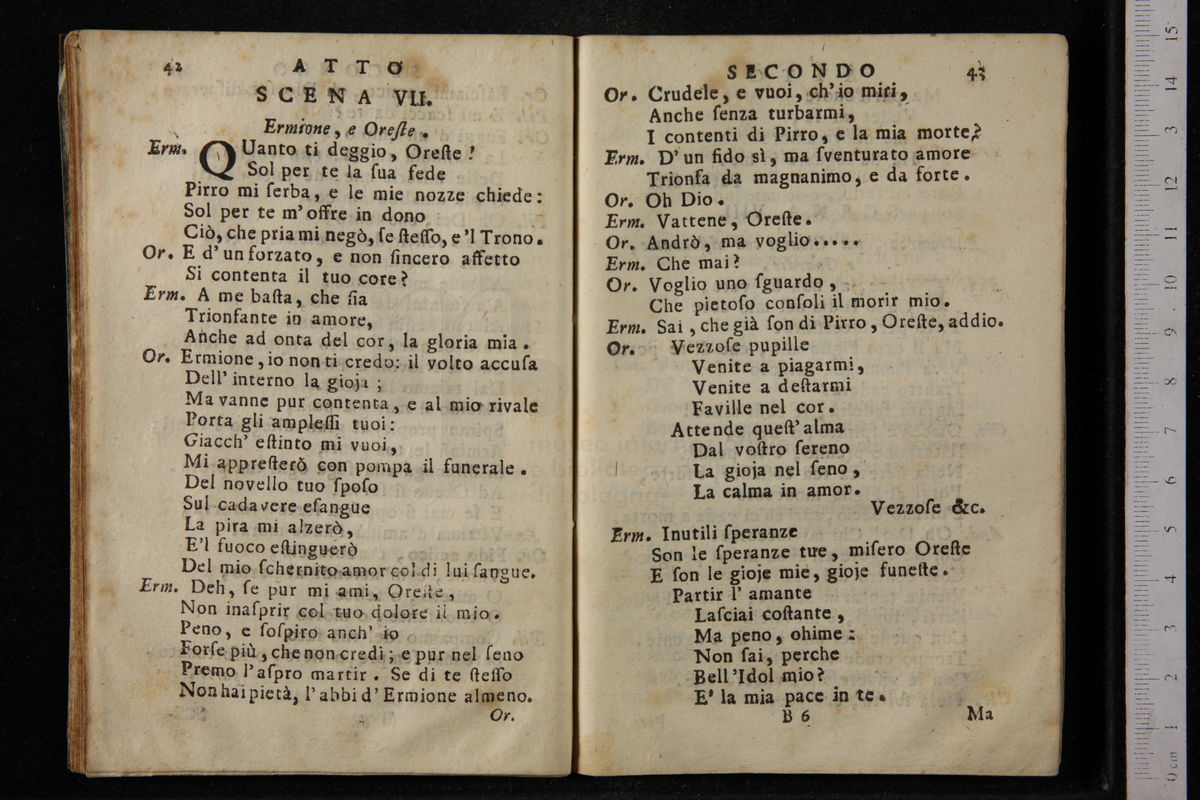 42 ATTO
SCENA VII.
Ermione, e Oreſte.
Erm. QUanto ti deggio, Oreſte!
Sol per te la ſua fede
Pirro mi ſerba, e le mie nozze chiede:
Sol per te m'offre in dono
Ciò, che pria mi negò, ſe ſteſſo, e'l Trono.
Or. E d'un forzato, e non ſincero affetto
Si contenta il tuo core?
Erm. A me baſta, che ſia
Trionfante in amore,
Anche ad onta del cor, la gloria mia.
Or. Ermione, io non ti credo: il volto accuſa
Dell' interno la gioja;
Ma vanne pur contenta, e al mio rivale
Porta gli ampleſſi tuoi:
Giacch' eſtinto mi vuoi,
Mi appreſterò con pompa il funerale.
Del novello tuo ſpoſo
Sul cadavere eſangue
La pira mi alzerò,
E'l fuoco eſtinguerò
Del mio ſchernito amor col di lui ſangue.
Erm. Deh, ſe pur mi ami, Oreſte,
Non inaſprir col tuo dolore il mio.
Peno, e ſoſpiro anch' io
Forſe più, che non credi; e pur nel ſeno
Premo l'aſpro martir. Se di te ſteſſo
Non hai pietà, l'abbi d' Ermione almeno.
Or.
SECONDO 43
Or. Crudele, e vuoi, ch'io miri,
Anche ſenza turbarmi,
I contenti di Pirro, e la mia morte?
Erm. D' un fido sì, ma ſventurato amore
Trionfa da magnanimo, e da forte.
Or. Oh Dio.
Erm. Vattene, Oreſte.
Or. Andrò, ma voglio.....
Erm. Che mai?
Or. Voglio uno ſguardo,
Che pietoſo conſoli il morir mio.
Erm. Sai, che già ſon di Pirro, Oreſte, addio.
Or. Vezzoſe pupille
Venite a piagarmi,
Venite a deſtarmi
Faville nel cor.
Attende queſt'alma
Dal voſtro ſereno
La gioja nel ſeno,
La calma in amor.
Vezzoſe &c.
Erm. Inutili ſperanze
Son le ſperanze tue, miſero Oreſte
E ſon le gioje mie, gioje funeſte.
Partir l' amante
Laſciai coſtante,
Ma peno, ohime:
Non ſai, perche
Bell'Idol mio?
E' la mia pace in te.
B 6 Ma
0 cm 1 2 3 4 5 6 7 8 9 10 11 12 13 14 15